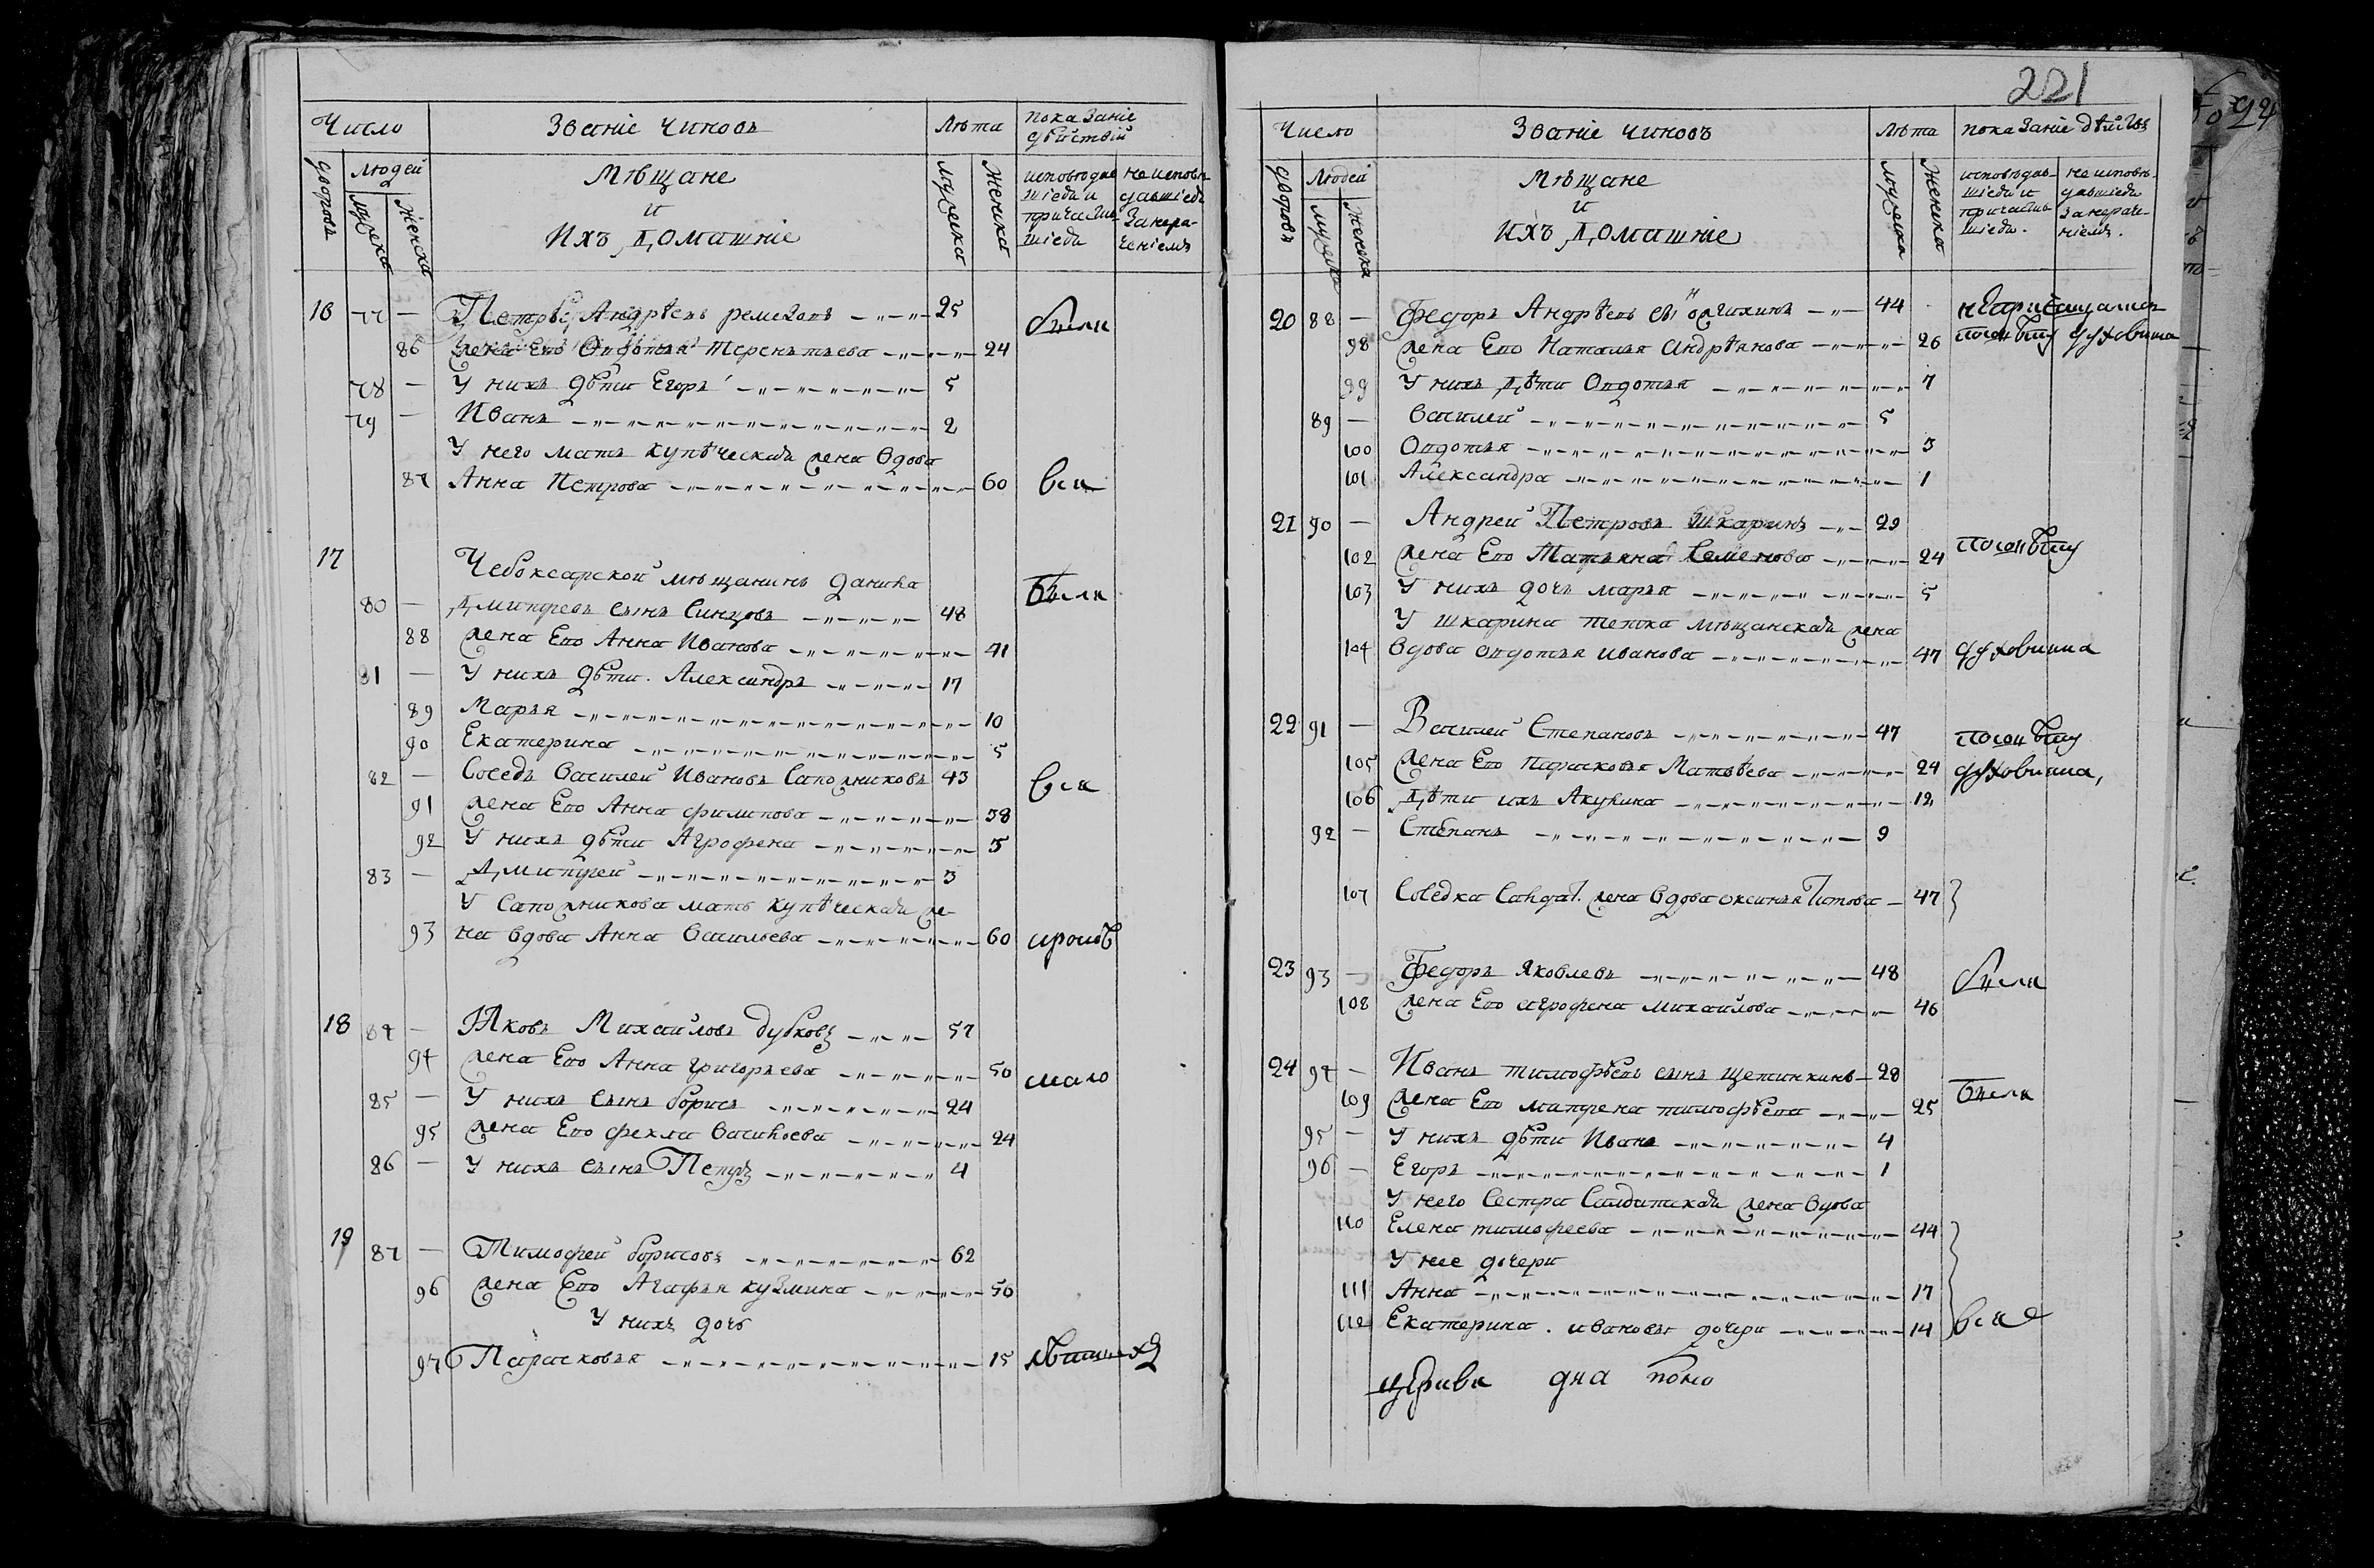 Число
Званіе Чиновъ
Лѣта
показаніе
дѣйствій
дворовъ
людей
мужеска
женска
Мѣщане
и
ихъ Домашніе
мужеска
женска
исповѣдав
шіеся и
причастив
шіеся
не исповѣ
давшіеся
За нера
ченіемъ
16 77 — Петръ Андрѣевъ ремезовъ 25 были
86 жена Его Овдотья Терентьева 24
78 — У нихъ дѣти Егоръ 5
79 — Иванъ 2
У него мать купѣческая жена вдова
87 Анна Петрова 60 вси
17 Чебоксарской мѣщанинъ данила
80 — Дмитревъ сынъ Синцовъ 48 были
88 жена Его Анна Иванова 41
81 — У нихъ дѣти. Александръ 17
89 Марья 10
90 Екатерина 5
82 — Соседъ Василей Ивановъ Сапожниковъ 43 вси
91 жена Его Анна филипова 38
92 У нихъ дѣти Агрофена 5
83 — Дмитрей 3
У Сапожникова мать купѣческая же-
93 на вдова Анна Васильева 60
18 84 — Яковъ Михайловъ дубковъ 57
94 жена Его Анна григорьева 50 мало
85 — У нихъ сынъ борисъ 24
95 жена Его фекла Васильева 24
86 — У нихъ сынъ Петръ 4
19 87 — Тимофей борисовъ 62
96 жена Его Агафья кузмина 56
У нихъ дочь
97 Парасковья 15
221
Число
Званіе чиновъ
Лѣта
показаніе дѣйств
дворовъ
людей
мужеска
женска
Мѣщане
и
ихъ Домашніе
мужеска
женска
исповѣдав-
шіеся и
причастив
шіеся.
не исповѣ-
давшіеся
за нераче-
ніемъ.
20 88 — Федоръ Андрѣевъ 44
98 жена Его Наталья Андрѣянова 26
99 У нихъ Дѣти Овдотья 7
89 — Василей 5
100 Овдотья 3
101 Александра 1
21 90 — Андрей Петровъ Шкаринъ 29
102 жена Его Татьяна Семенова 24
103 У нихъ дочь марья 5
У шкарина тетка мѣщанская жена
104 вдова овдотья иванова 47
22 91 — Василей Степановъ 47
105 жена Его Парасковья Матвѣева 24
106 Дѣти ихъ Акулина 12
92 — Степанъ 9
107 Соседка Салдат. жена вдова оксинья Титова 47
23 93 — Федоръ Яковлевъ 48 были
108 жена Его агрофена михайлова 46
24 94 — Иванъ тимофѣевъ сынъ щетинкинъ 28
109 жена Его матрена тимофѣева 25 были
95 — У нихъ дѣти Иванъ 4
96 — Егоръ 1
У него Сестра Салдатская жена вдова
110 Елена тимофеева 44
У нее дочери
111 Анна 17
112 Екатерина. ивановы дочери 14 вси